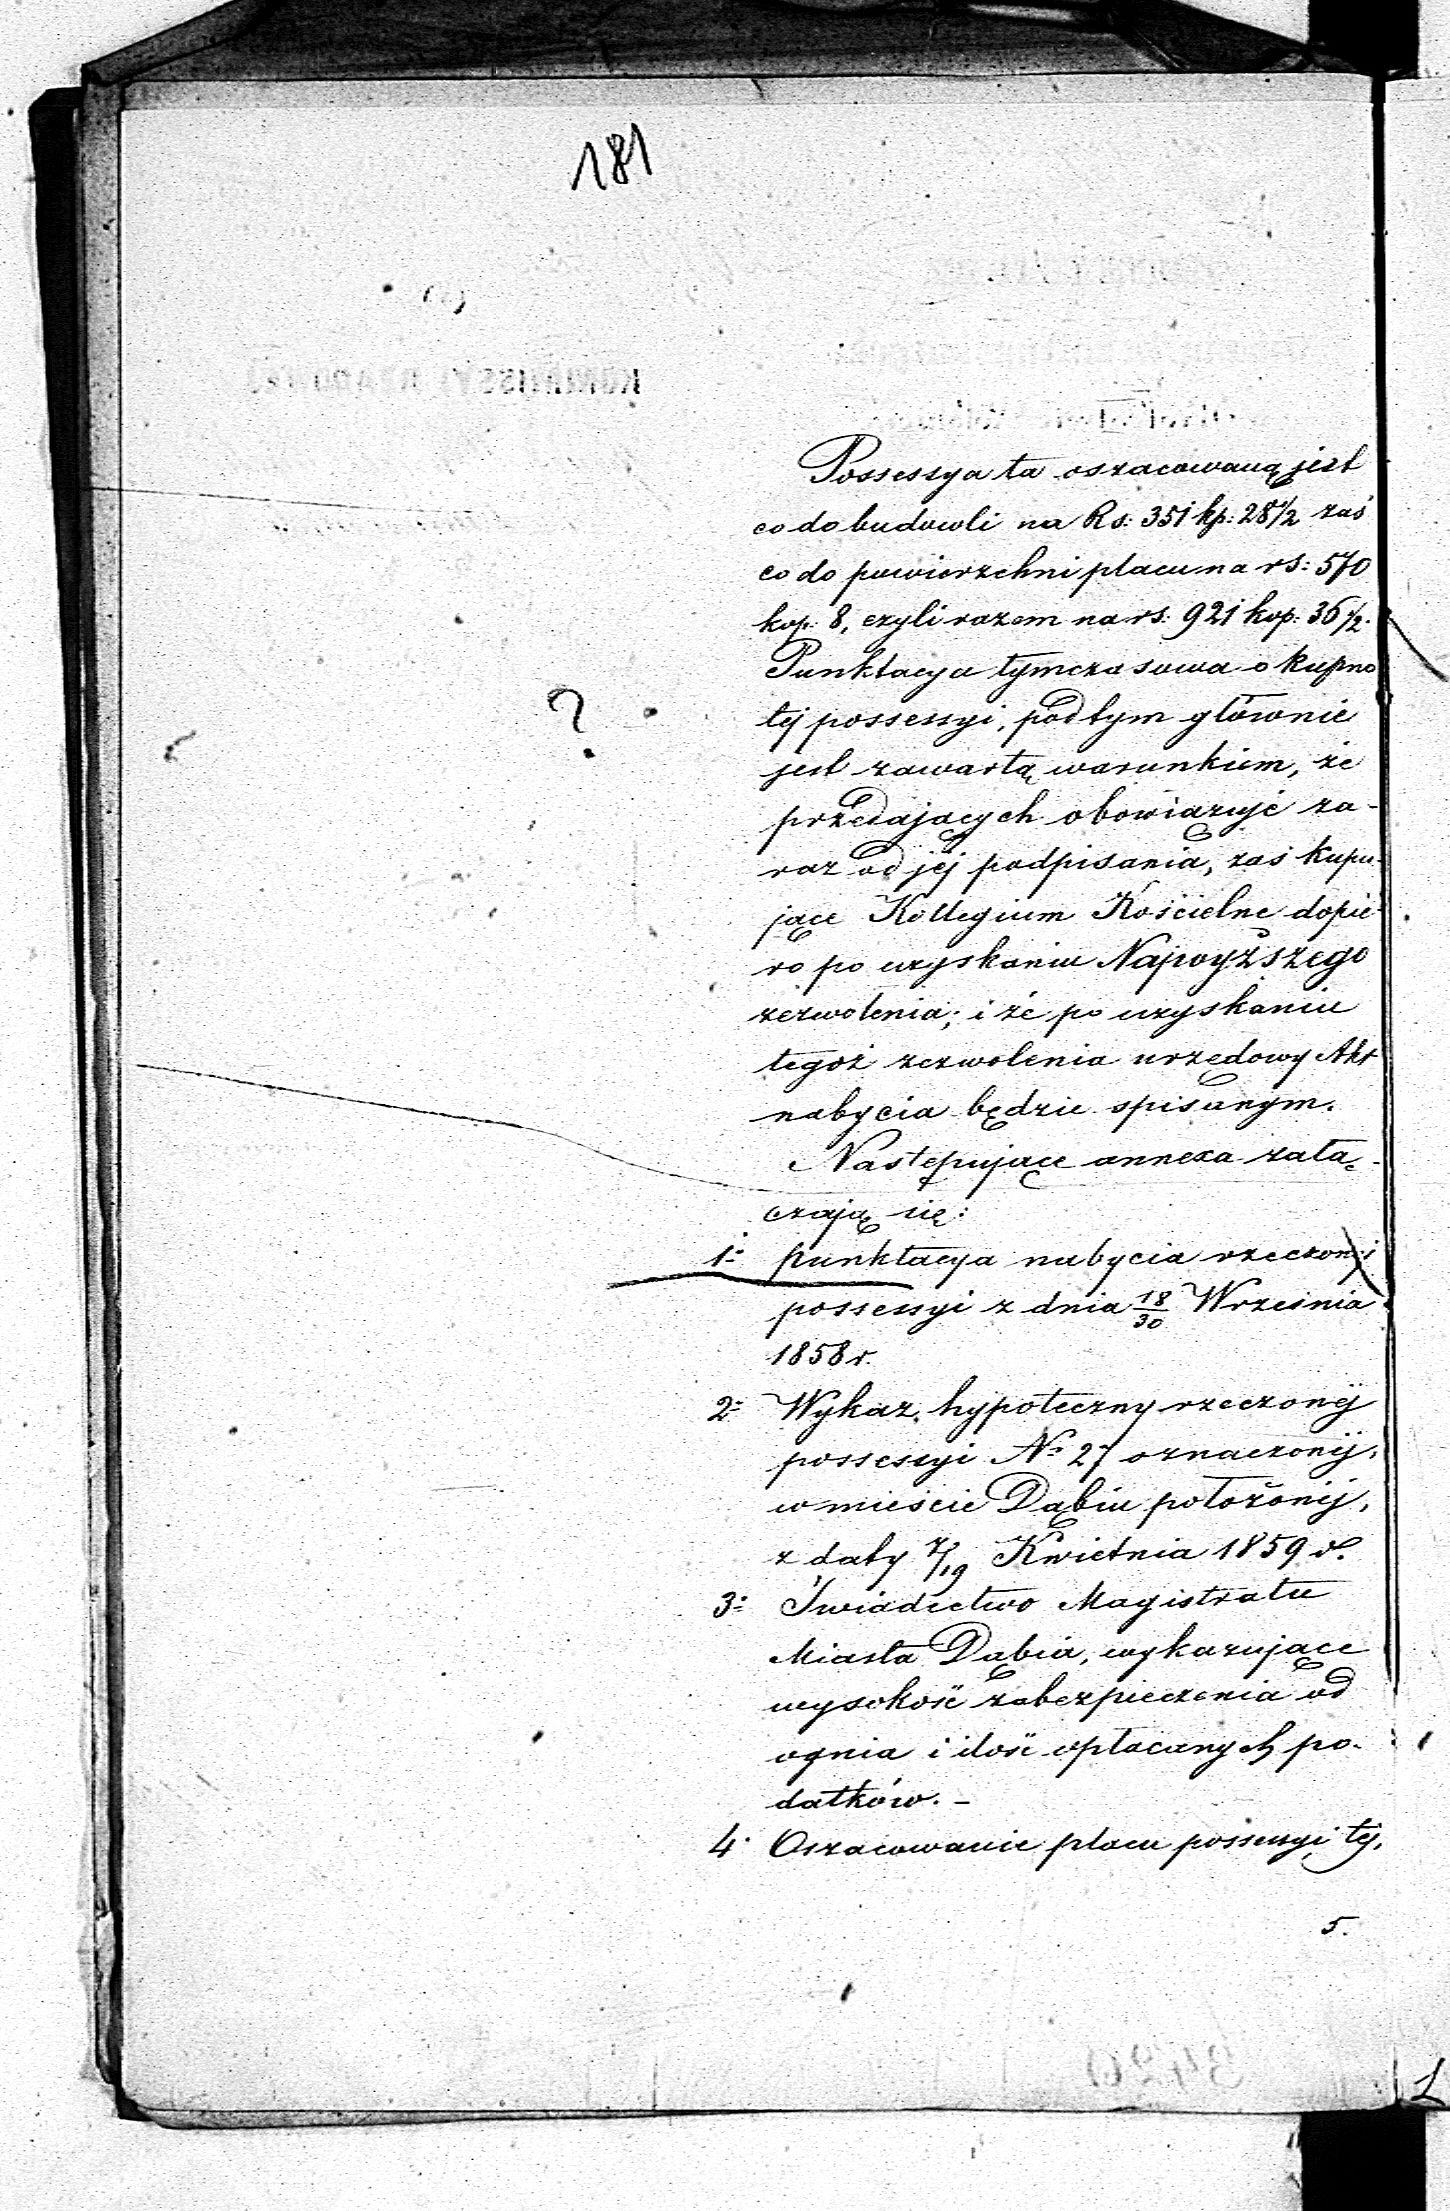 181
Possessya ta oszacowaną jest
co do budowli na Rs: 351 kp: 28 1/2 zaś
co do powierzchni placu na rs: 570
kop: 8, czyli razem na rs: 921 kop: 36 1/2.
Punktacya tymczasowa o kupno
tej possessyi, pod tym głównie
jest zawartą warunkiem, że
przedających obowiązuje za-
raz od jéj podpisania, zaś kupu-
jące Kollegium Kościelne dopie-
ro po uzyskaniu Najwyższego
zezwolenia; i że po uzyskaniu
tegoż zezwolenia urzędowy Akt
nabycia będzie spisanym.
Następujące annexa załą-
czają się:
1. punktacya nabycia rzeczonej
possessyi z dnia 18/30 Września
1858 r.
2. Wykaz hypoteczny rzeczonéj
possessyi No 27 oznaczonéj,
w mieście Dąbiu położonéj,
z daty 7/19 Kwietnia 1859 r.
3. Świadectwo Magistratu
Miasta Dąbia, wykazujące
wysokość zabezpieczenia od
ognia i ilość opłacanych po-
datków. -
4. Oszacowanie placu possessyi tej.
5.